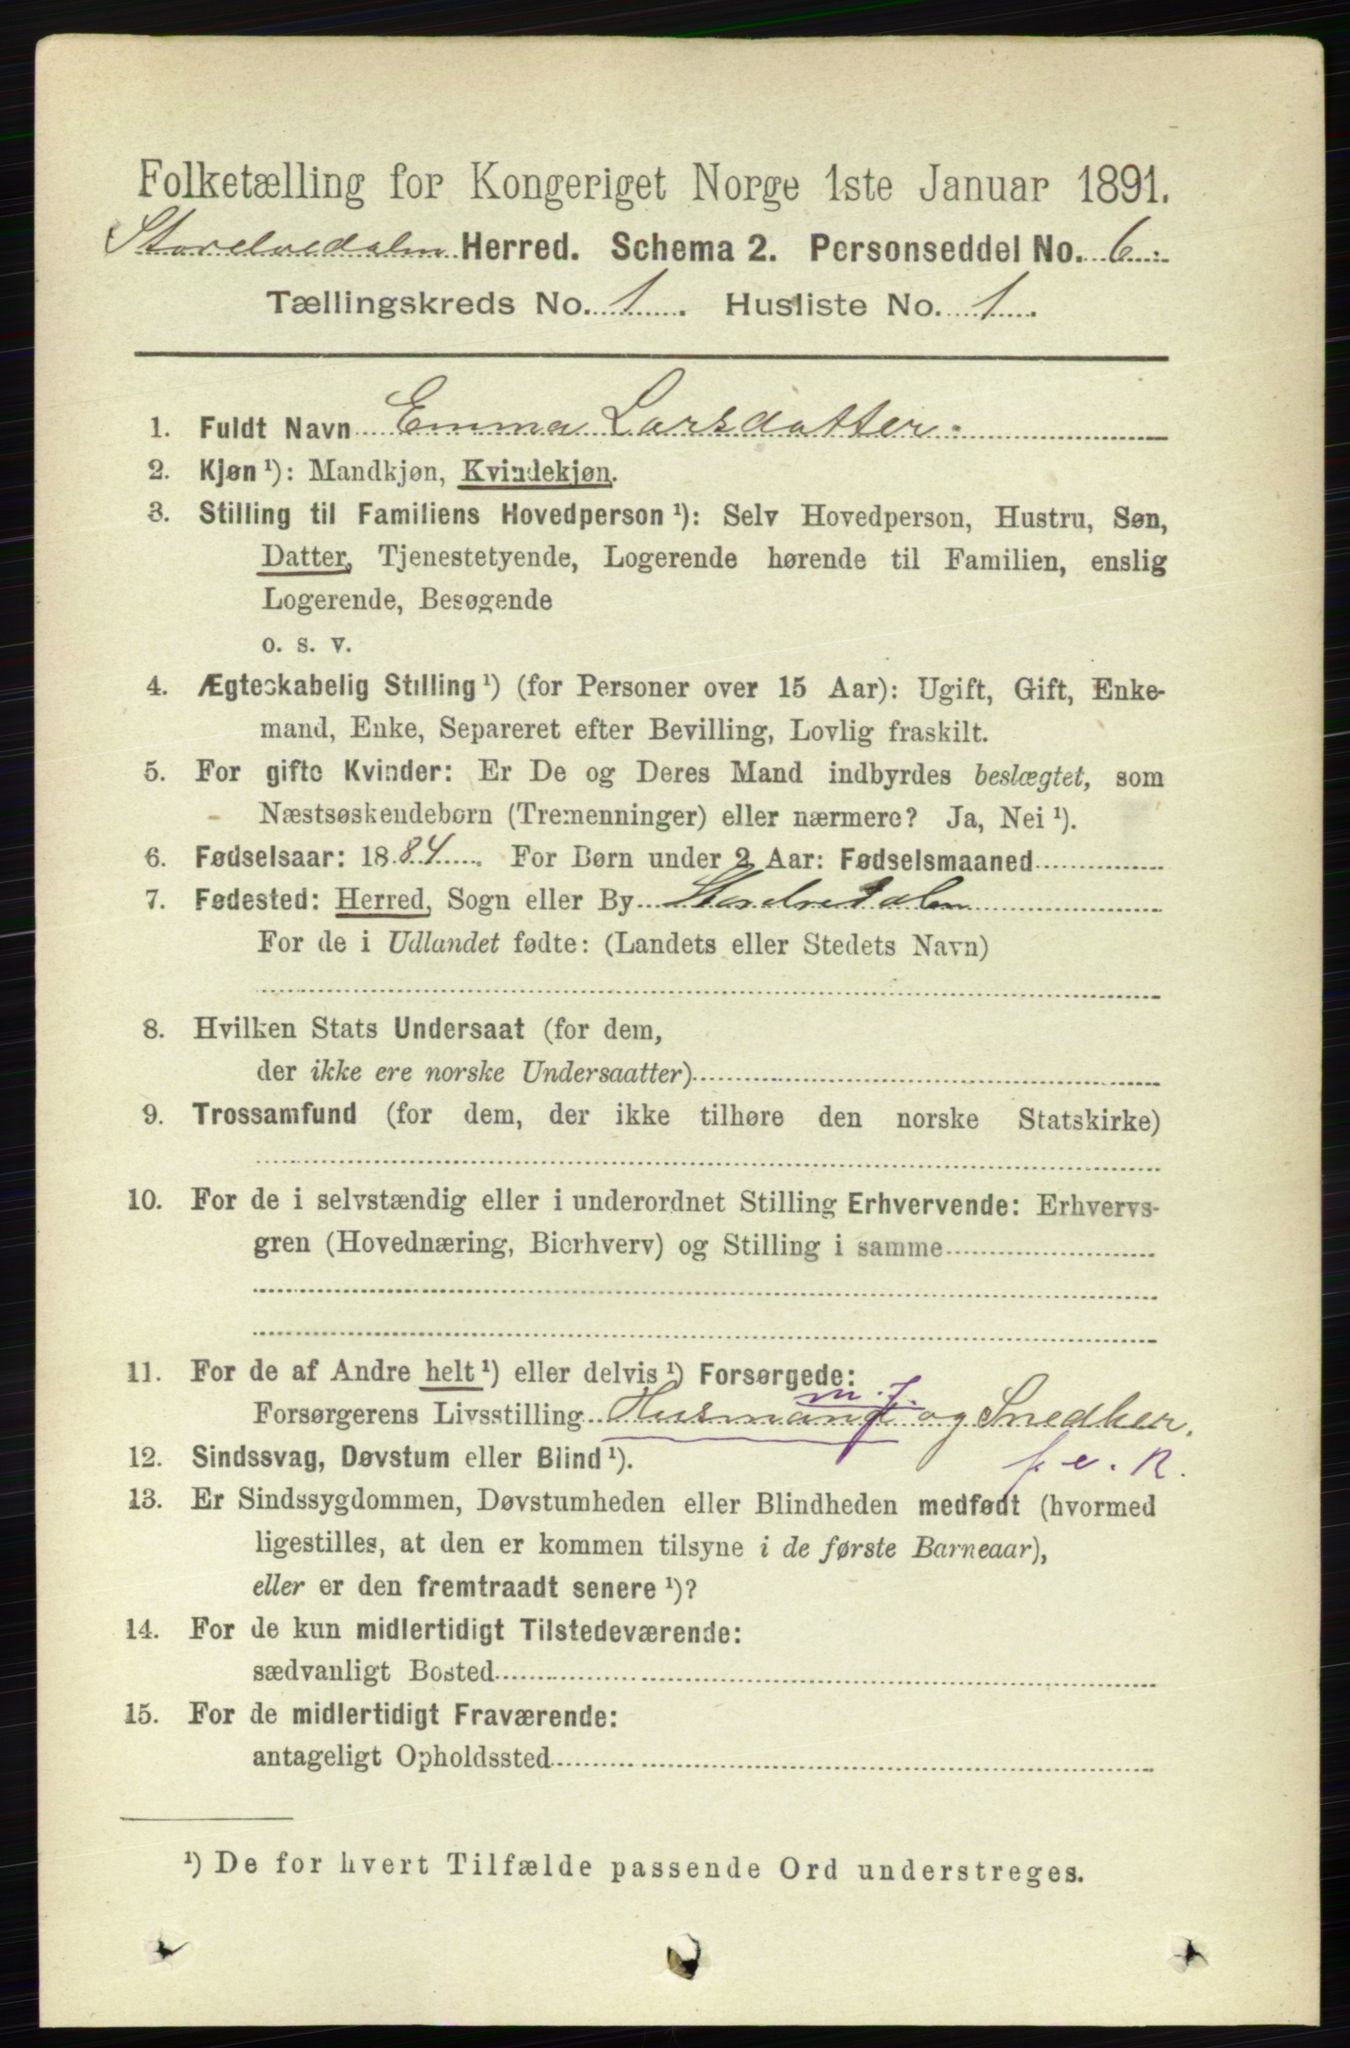 Folketælling for Kongeriget Norge 1ste Januar 1891.
Storelvedalen Herred. Schema 2. Personseddel No. 6.
Tællingskreds No. 1. Husliste No. 1.
1. Fuldt Navn Emma Larsdatter.
2. Kjøn ¹): Mandkjøn, Kvindekjøn.
3. Stilling til Familiens Hovedperson ¹): Selv Hovedperson, Hustru, Søn,
Datter, Tjenestetyende, Logerende hørende til Familien, enslig
Logerende, Besøgende
o. s. v.
4. Ægteskabelig Stilling ¹) (for Personer over 15 Aar): Ugift, Gift, Enke-
mand, Enke, Separeret efter Bevilling, Lovlig fraskilt.
5. For gifte Kvinder: Er De og Deres Mand indbyrdes beslægtet, som
Næstsøskendebørn (Tremenninger) eller nærmere? Ja, Nei ¹).
6. Fødselsaar: 1884. For Børn under 2 Aar: Fødselsmaaned
7. Fødested: Herred, Sogn eller By Storelvedalen
For de i Udlandet fødte: (Landets eller Stedets Navn)
8. Hvilken Stats Undersaat (for dem,
der ikke ere norske Undersaatter)
9. Trossamfund (for dem, der ikke tilhøre den norske Statskirke)
10. For de i selvstændig eller i underordnet Stilling Erhvervende: Erhvervs-
gren (Hovednæring, Bierhverv) og Stilling i samme
11. For de af Andre helt ¹) eller delvis ¹) Forsørgede:
m. j.
Forsørgerens Livsstilling Husmand og Snedker.
12. Sindssvag, Døvstum eller Blind ¹).
13. Er Sindssygdommen, Døvstumheden eller Blindheden medfødt (hvormed
ligestilles, at den er kommen tilsyne i de første Barneaar),
eller er den fremtraadt senere ¹)?
14. For de kun midlertidigt Tilstedeværende:
sædvanligt Bosted
15. For de midlertidigt Fraværende:
antageligt Opholdssted
¹) De for hvert Tilfælde passende Ord understreges.